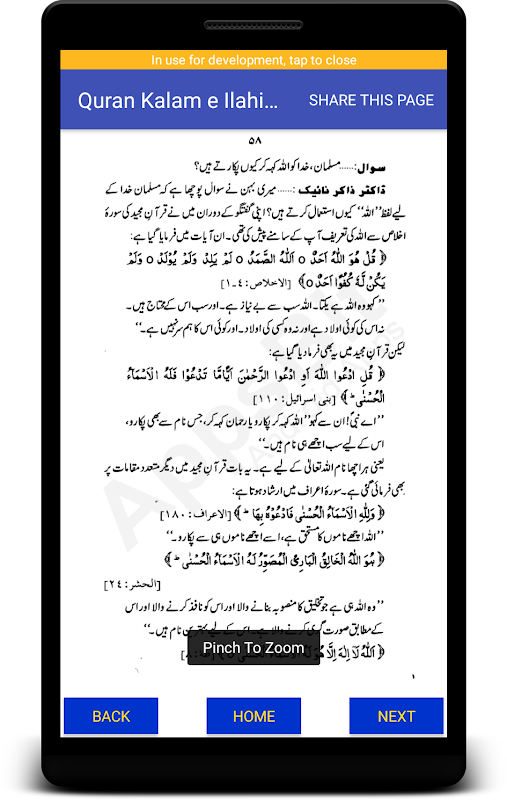 In use for development, tap to close
Quran Kalam e Ilahi... SHARE THIS PAGE
۵۸
سوال:......مسلمان، خدا کو اللہ کہہ کر کیوں پکارتے ہیں؟
ڈاکٹر ذاکر نائیک :......میری بہن نے سوال پوچھا ہے کہ مسلمان خدا کے
لیے لفظ ’’اللہ‘‘ کیوں استعمال کرتے ہیں؟ اپنی گفتگو کے دوران میں نے قرآنِ مجید کی سورۂ
اخلاص سے اللہ کی تعریف آپ کے سامنے پیش کی تھی۔ ان آیات میں فرمایا گیا ہے:
﴿ قُلْ هُوَ اللّٰهُ اَحَدٌ o اَللّٰهُ الصَّمَدُ o لَمْ يَلِدْ وَلَمْ يُوْلَدْ o وَلَمْ
يَكُنْ لَّهٗ كُفُوًا اَحَدٌ o﴾ [الاخلاص: ٤۔١]
’’کہو وہ اللہ ہے یکتا۔ اللہ سب سے بے نیاز ہے۔ اور سب اس کے محتاج ہیں۔
نہ اس کی کوئی اولاد ہے اور نہ وہ کسی کی اولاد۔ اور کوئی اس کا ہم سر نہیں ہے۔‘‘
لیکن قرآنِ مجید میں یہ بھی فرما دیا گیا ہے:
﴿ قُلِ ادْعُوا اللّٰهَ اَوِ ادْعُوا الرَّحْمٰنَ اَيًّامَّا تَدْعُوْا فَلَهُ الْاَسْمَآءُ
الْحُسْنٰى ط﴾ [بنی اسرائیل: ١١٠]
’’اے نبیؐ! ان سے کہو ’’اللہ کہہ کر پکارو یا رحمان کہہ کر، جس نام سے بھی پکارو،
اس کے لیے سب اچھے ہی نام ہیں۔‘‘
یعنی ہر اچھا نام اللہ تعالیٰ کے لیے ہے۔ یہ بات قرآنِ مجید میں دیگر متعدد مقامات پر
بھی فرمائی گئی ہے۔ سورۂ اعراف میں ارشاد ہوتا ہے:
﴿ وَلِلّٰهِ الْاَسْمَآءُ الْحُسْنٰى فَادْعُوْهُ بِهَا ط﴾ [الاعراف: ١٨٠]
’’اللہ اچھے ناموں کا مستحق ہے، اسے اچھے ناموں ہی سے پکارو۔‘‘
﴿ هُوَ اللّٰهُ الْخَالِقُ الْبَارِئُ الْمُصَوِّرُ لَهُ الْاَسْمَآءُ الْحُسْنٰى ط﴾
[الحشر: ٢٤]
’’وہ اللہ ہی ہے جو تخلیق کا منصوبہ بنانے والا اور اس کو نافذ کرنے والا اور اس
کے مطابق صورت گری کرنے والا ہے۔ اس کے لیے بہترین نام ہیں۔‘‘
﴿ اَللّٰهُ لَآ اِلٰهَ اِلَّا هُوَ
Pinch To Zoom
۱
BACK HOME NEXT